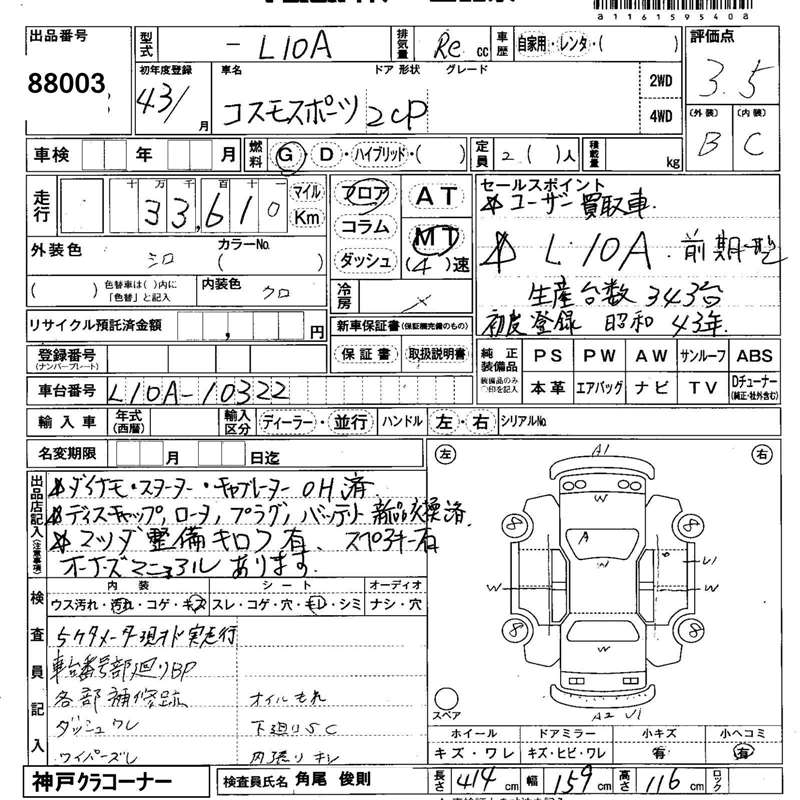 a11615954 0a
出品番号
88003
型式
- L10A
排気量
Re cc
車歴
自家用・レンタ・( )
評価点
3.5
初年度登録
43/ 月
車名
ドア 形状 グレード
コスモスポーツ 2CP
2WD
4WD
(外装) (内装)
B C
車検 年 月
燃料
G・D・ハイブリッド・( )
定員
2 ( )人
積載量
kg
走行
十 万 千 百 十 一
33,610
マイル
Km
フロア
コラム
ダッシュ
AT
MT
(4)速
セールスポイント
ユーザー買取車
L10A 前期型
生産台数 343台
初度登録 昭和43年
外装色
シロ
カラーNo.
( )
( ) 色替車は( )内に「色替」と記入
内装色
クロ
冷房
リサイクル預託済金額
, 円
新車保証書(保証欄完備のもの)
保証書 取扱説明書
登録番号
(ナンバープレート)
純正装備品
装備品のみ○印を記入
PS PW AW サンルーフ ABS
本革 エアバッグ ナビ TV Dチューナー
(純正・社外含む)
車台番号
L10A-10322
輸入車
年式(西暦)
輸入区分
ディーラー・並行
ハンドル 左・右
シリアルNo.
名変期限 月 日迄
出品店記入(注意事項)
ダイナモ・スターター・キャブレーター OH済
ディスキャップ,ロータ,プラグ,バッテリー 新品交換済
マツダ整備キロク有、スペアキー有
オーナーズマニュアルあります.
検査員記入
内装 シート オーディオ
ウス汚れ・汚れ・コゲ・キズ スレ・コゲ・穴・キレ・シミ ナシ・穴
5ケタメーター現オド実走行
車台番号部廻りBP
各部補修跡 オイルもれ
ダッシュワレ 下廻りSC
ワイパーズレ 内張りキレ
左 右
A1
W
A
W
W
8
8
8
8
U1
W W
A2 U1
スペア
ホイール ドアミラー 小キズ 小ヘコミ
キズ・ワレ キズ・ヒビ・ワレ 有 有
神戸クラコーナー
検査員氏名 角尾 俊則
長さ 414 cm 幅 159 cm 高さ 116 cm ロック